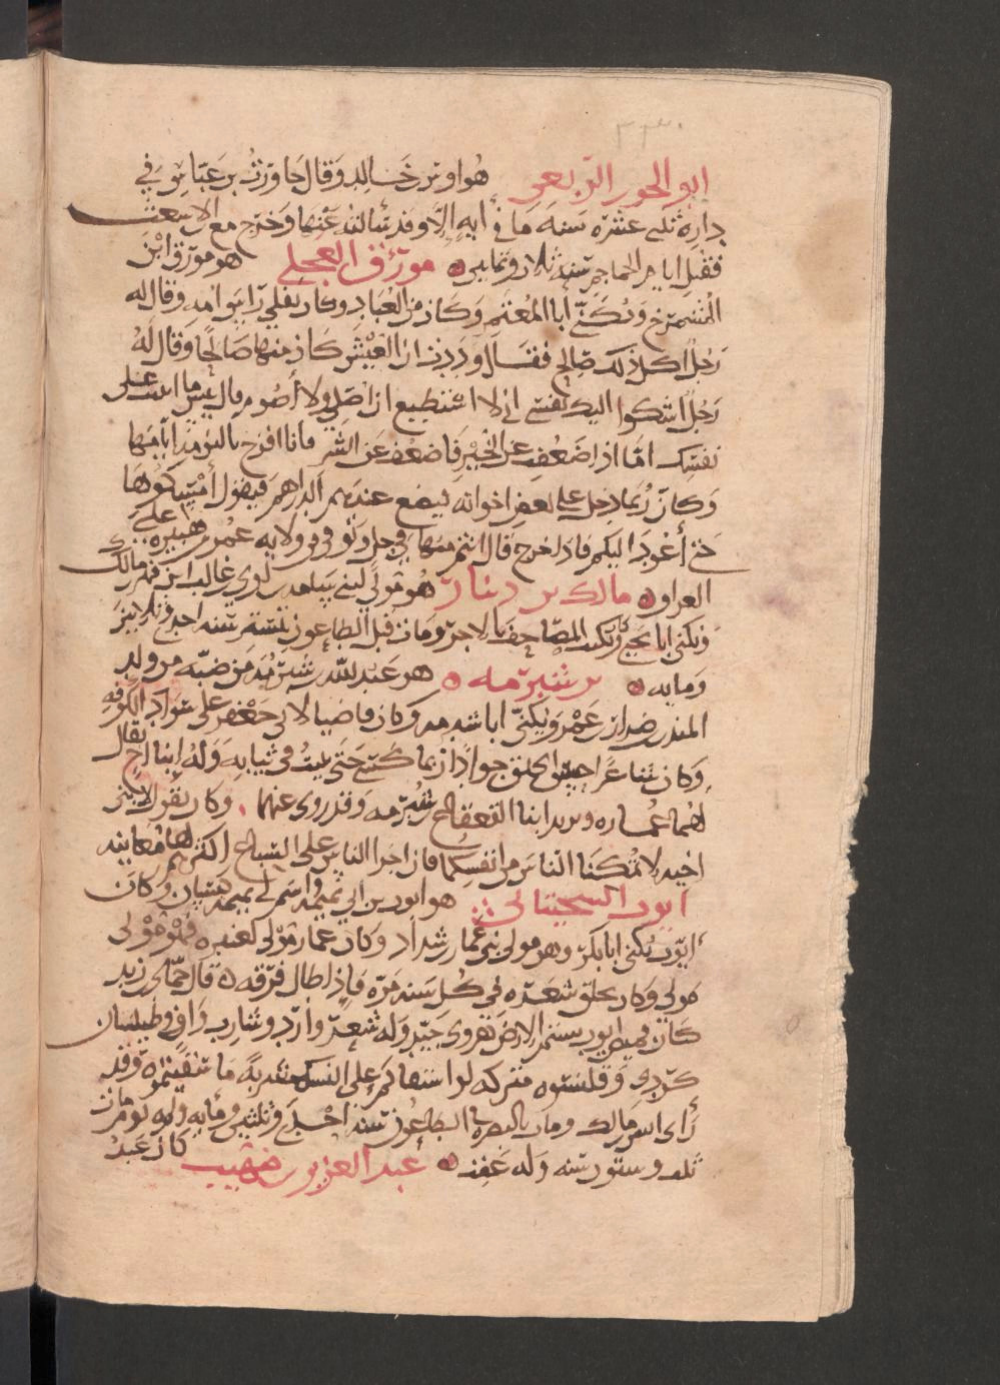 ابو الجوزا الربعي هو اوس بن خالد وقال جاورت بن عباس في
داره ثنتي عشرة سنة ما في اية الا وقد سالته عنها وخرج مع ابن الاشعث
فقتل ايام الجماجم سنة ثلاث وثمانين ه مورق العجلي هو مورق ابن
المشمرخ ويكنى ابا المعتمر وكان من العباد وكان يفلي راس امه وقال له
رجل اكل ذلك صالح فقال وددت ان العيش كان منها صالحا وقال له
رجل اشكوا اليك نفسي اني لا استطيع ان اصلي ولا اصوم قال بيس ما اثنيت على
نفسك اما اذ اضعفت عن الخير فاضعف عن الشر فانا افرح بالنومة انامها
وكان ربما دخل على بعض اخوانه فيضع عندهم الدراهم فيقول امسكوها
حتى اعود اليكم فاذا خرج قال انتم منها في حل وتوفي في ولاية عمر بن هبيرة على
العراق ه مالك بن دينار هو مولى لبني سامة بن لوي بن غالب ابن فهر بن مالك
ويكنى ابا يحيى وكان يكتب المصاحف بالاجر ومات قبل الطاعون بيسير سنة احدى وثلاثين
ومايه ه بن شبرمه ه هو عبد الله بن شبرمة من ضبه من ولد
المنذر بن ضرار بن عمرو ويكنى ابا شبرمه وكان قاضيا لابي جعفر على سواد الكوفة
وكان شاعرا حسن الخلق جوادا ربما كسى حتى يبيت في ثيابه وله ابنا اخ يقال
لهما عماره ويزيد ابنا القعقاع بن شبرمه وقد روى عنهما وكان يقول لابني
اخيه لا تمكنا الناس من انفسكما فان اجرا الناس على السباع اكثرهم لها معاينه
ايوب السختياني هو ايوب بن ابي تميمة واسم ابي تميمة كيسان وكان
ايوب يكنى ابا بكر وهو مولى بني عمار بن شداد وكان عمار مولى لعنزه فهو مولى
مولى وكان يحلق شعره في كل سنة مرة فاذا طال فرقه ه قال حماد بن زيد
كان قميص ايوب يشم الارض هروي جيد وله شعر وارد وشارب واف وطيلسان
كردي وقلنسوه متركه لو استسقاكم على النسك شربة ما سقيتموه وقد
راى انس بن مالك ومات بالبصرة في الطاعون سنة احدى وثلثين ومايه وله يوم مات
ثلث وستون سنه وله عقب ه عبد العزيز بن صهيب كان عبد